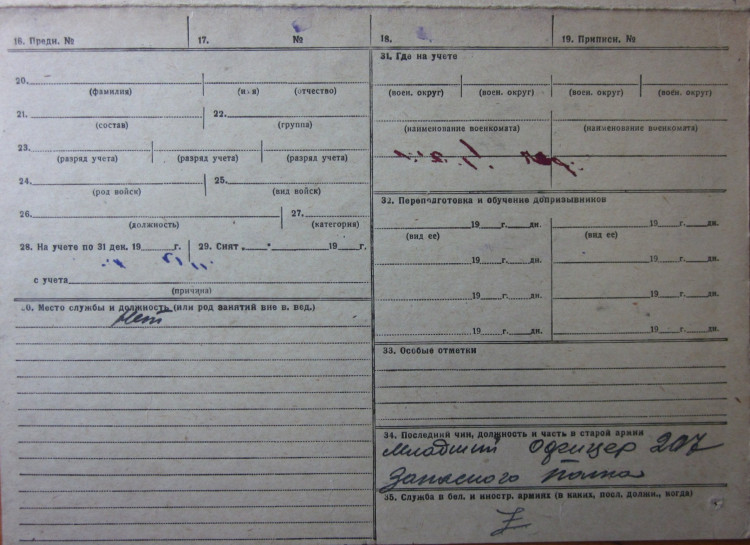 16. Предн. № 17. № 18. 19. Приписн. №
20.
(фамилия) (отчество)
21. 22.
(состав) (группа)
23.
(разряд учета) (разряд учета) (разряд учета)
24. 25.
(род войск) (вид войск)
26. 27.
(должность) (категория)
28. На учете по 31 дек. 19 г. 29. Снят " 19 г.
с учета
(причина)
Место службы и должность (или род занятий вне в. вед.)
Нет
31. Где на учете
(воен. округ) (воен. округ) (воен. округ) (воен. округ)
(наименование военкомата) (наименование военкомата)
32. Переподготовка и обучение допризывников
19 г. дн. 19 г. дн.
(вид ее) (вид ее)
19 г. дн. 19 г. дн.
19 г. дн. 19 г. дн.
19 г. дн. 19 г. дн.
33. Особые отметки
34. Последний чин, должность и часть в старой армии
Младший Офицер 207
Запасного Полка
35. Служба в бел. и иностр. армиях (в каких, посл. должн., когда)